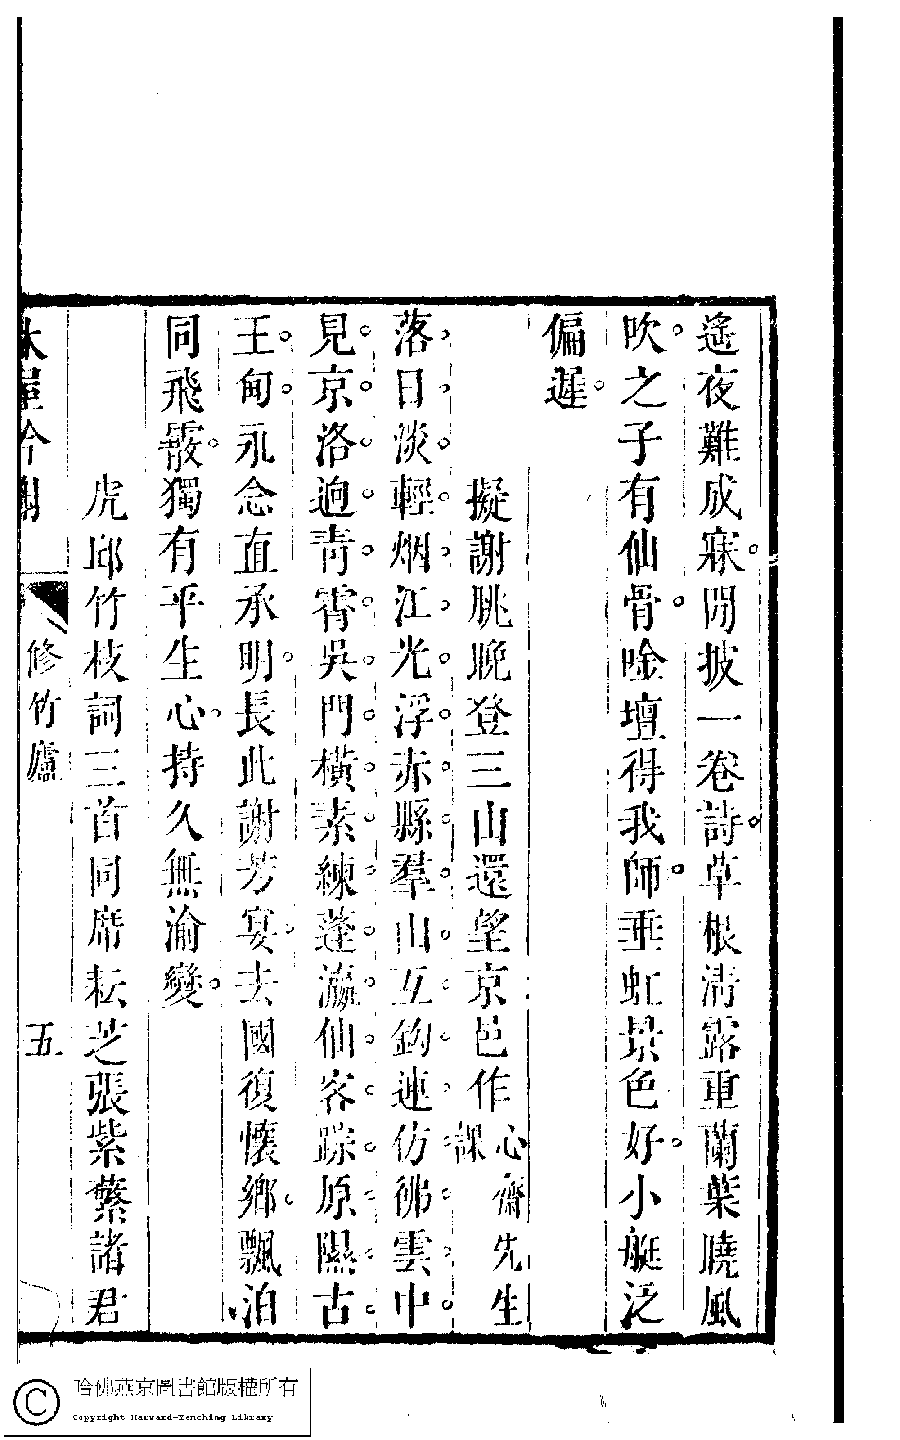 遙夜難成寐閒披一卷詩草根清露重蘭葉曉風
吹之子有仙骨唫壇得我師垂虹景色好小艇泛
偏遲
擬謝脁晚登三山還望京邑作心齋先生課
落日淡輕烟江光浮赤縣羣山互鈎連仿彿雲中
見京洛迥靑霄吳門橫素練蓬瀛仙客蹤原隰古
王甸永念直承明長此謝芳宴去國復懷鄉飄泊
同飛霰獨有平生心持久無渝變
虎邱竹枝詞三首同席耘芝張紫蘩諸君
修竹廬
五
哈佛燕京圖書館版權所有
Copyright Harvard-Yenching Library